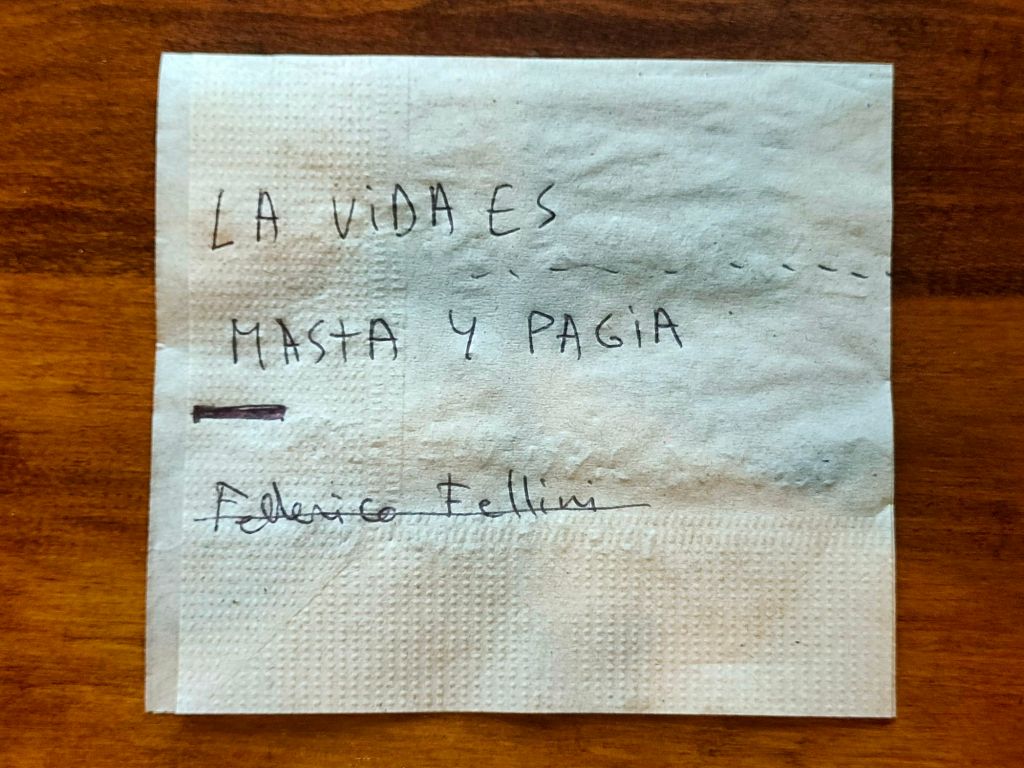 LA ViDA ES
MAStA Y PAGiA
Federico Fellini